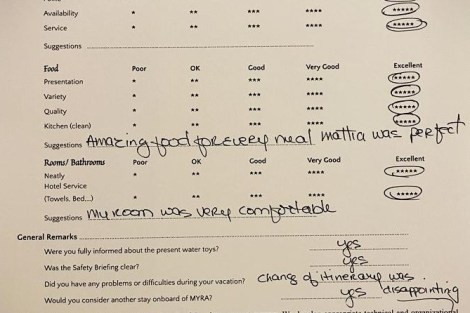 Availability * ** *** **** *****
Service * ** *** **** *****
Suggestions
Food Poor OK Good Very Good Excellent
Presentation * ** *** **** *****
Variety * ** *** **** *****
Quality * ** *** **** *****
Kitchen (clean) * ** *** **** *****
Suggestions Amazing food for every meal mattia was perfect
Rooms/ Bathrooms Poor OK Good Very Good Excellent
Neatly * ** *** **** *****
Hotel Service
(Towels, Bed...) * ** *** **** *****
Suggestions my room was very comfortable
General Remarks
Were you fully informed about the present water toys? yes
Was the Safety Briefing clear? yes
Did you have any problems or difficulties during your vacation? change of itinerary was disappointing
Would you consider another stay onboard of MYRA? yes